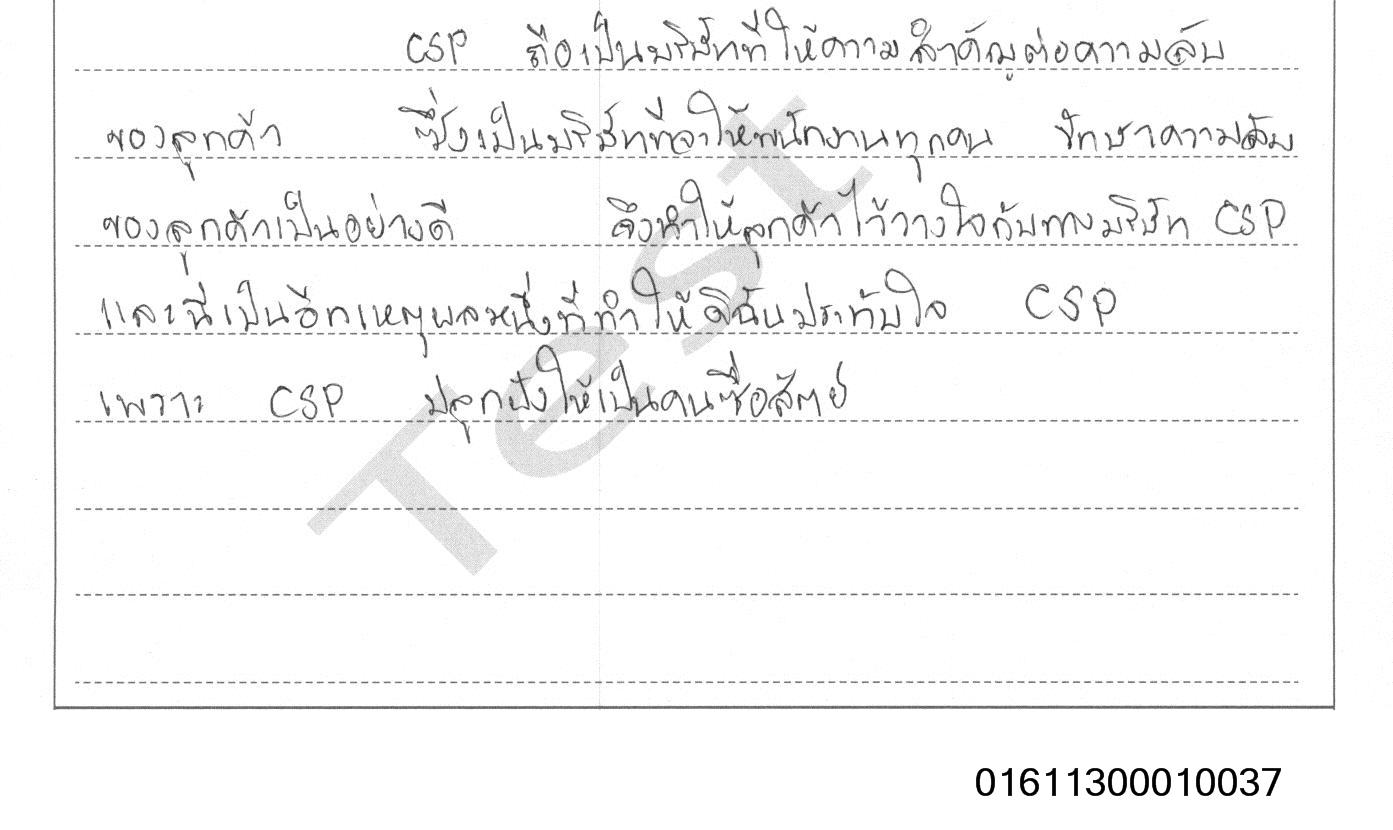 CSP ถือเป็นบริษัทที่ให้ความสำคัญต่อความลับ
ของลูกค้า ซึ่งเป็นบริษัทที่จะให้พนักงานทุกคน รักษาความลับ
ของลูกค้าเป็นอย่างดี จึงทำให้ลูกค้าไว้วางใจกับทางบริษัท CSP
และนี่เป็นอีกเหตุผลหนึ่งที่ทำให้ดิฉันประทับใจ CSP
เพราะ CSP ปลูกฝังให้เป็นคนซื่อสัตย์
Test
01611300010037